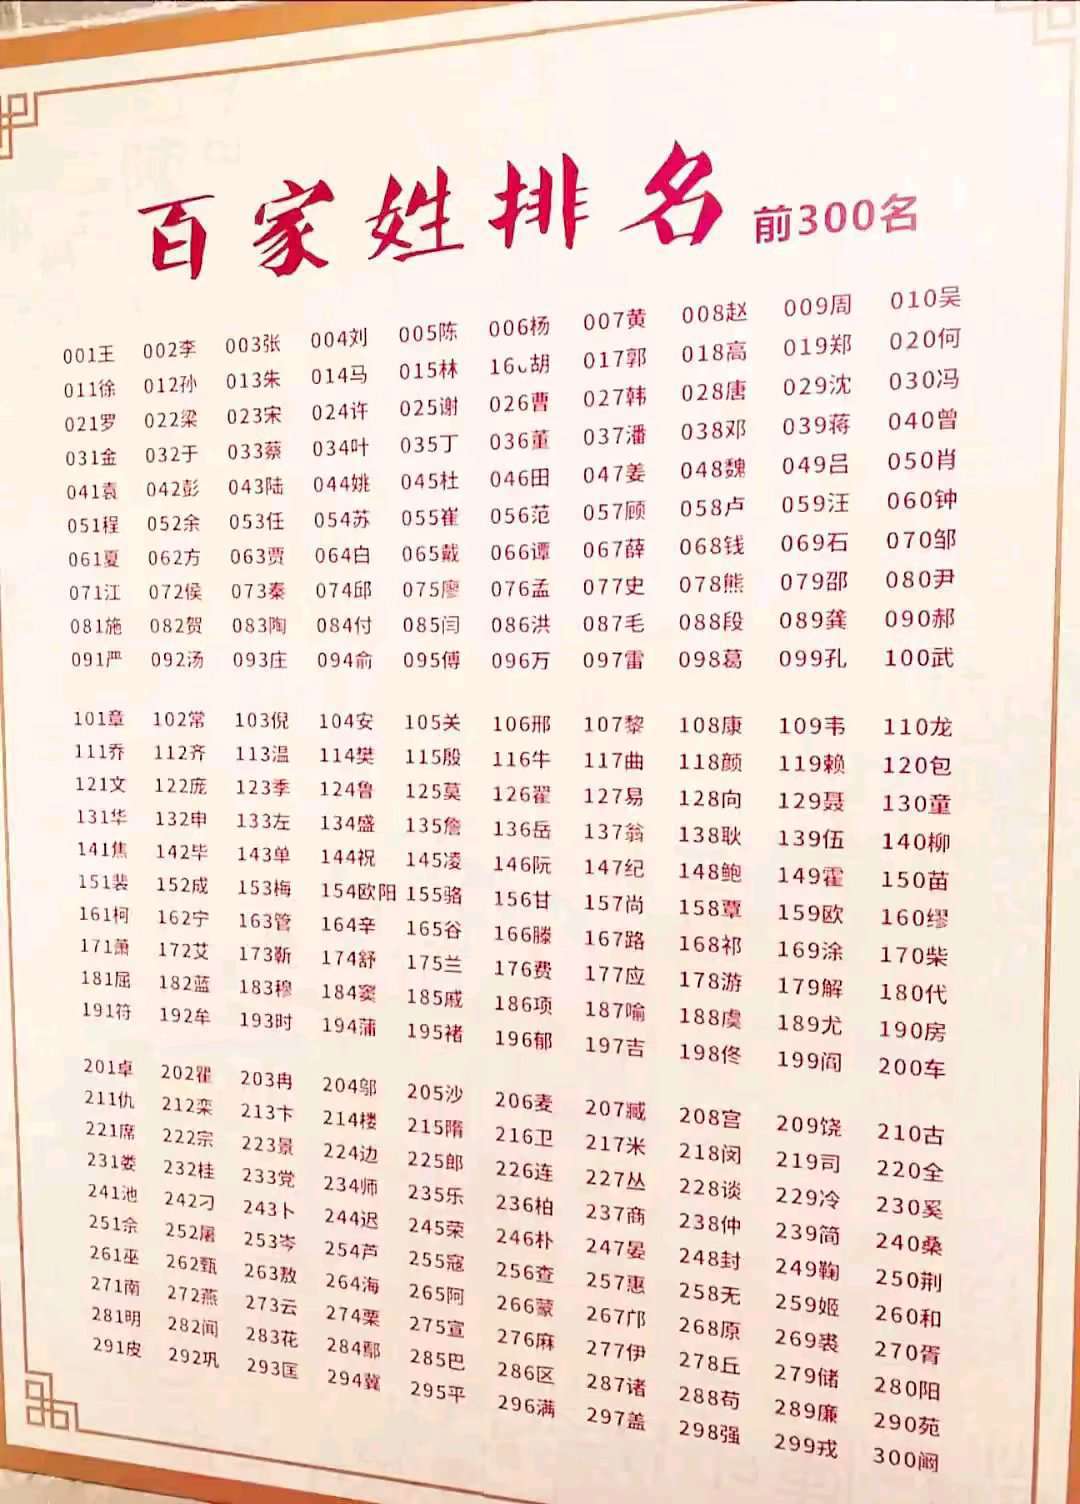 百家姓排名 前300名
001王 002李 003张 004刘 005陈 006杨 007黄 008赵 009周 010吴
011徐 012孙 013朱 014马 015林 16胡 017郭 018高 019郑 020何
021罗 022梁 023宋 024许 025谢 026曹 027韩 028唐 029沈 030冯
031金 032于 033蔡 034叶 035丁 036董 037潘 038邓 039蒋 040曾
041袁 042彭 043陆 044姚 045杜 046田 047姜 048魏 049吕 050肖
051程 052余 053任 054苏 055崔 056范 057顾 058卢 059汪 060钟
061夏 062方 063贾 064白 065戴 066谭 067薛 068钱 069石 070邹
071江 072侯 073秦 074邱 075廖 076孟 077史 078熊 079邵 080尹
081施 082贺 083陶 084付 085闫 086洪 087毛 088段 089龚 090郝
091严 092汤 093庄 094俞 095傅 096万 097雷 098葛 099孔 100武
101章 102常 103倪 104安 105关 106邢 107黎 108康 109韦 110龙
111乔 112齐 113温 114樊 115殷 116牛 117曲 118颜 119赖 120包
121文 122庞 123季 124鲁 125莫 126翟 127易 128向 129聂 130童
131华 132申 133左 134盛 135詹 136岳 137翁 138耿 139伍 140柳
141焦 142毕 143单 144祝 145凌 146阮 147纪 148鲍 149霍 150苗
151裴 152成 153梅 154欧阳 155骆 156甘 157尚 158覃 159欧 160缪
161柯 162宁 163管 164辛 165谷 166滕 167路 168祁 169涂 170柴
171萧 172艾 173靳 174舒 175兰 176费 177应 178游 179解 180代
181屈 182蓝 183穆 184窦 185戚 186项 187喻 188虞 189尤 190房
191符 192牟 193时 194蒲 195褚 196郁 197吉 198佟 199阎 200车
201卓 202瞿 203冉 204邬 205沙 206麦 207臧 208宫 209饶 210古
211仇 212栾 213卞 214楼 215隋 216卫 217米 218闵 219司 220全
221席 222宗 223景 224边 225郎 226连 227丛 228谈 229冷 230奚
231娄 232桂 233党 234师 235乐 236柏 237商 238仲 239简 240桑
241池 242刁 243卜 244迟 245荣 246朴 247晏 248封 249鞠 250荆
251佘 252屠 253岑 254芦 255寇 256查 257惠 258无 259姬 260和
261巫 262甄 263敖 264海 265阿 266蒙 267邝 268原 269裘 270胥
271南 272燕 273云 274栗 275宣 276麻 277伊 278丘 279储 280阳
281明 282闻 283花 284鄢 285巴 286区 287诸 288苟 289廉 290苑
291皮 292巩 293匡 294冀 295平 296满 297盖 298强 299戎 300阚